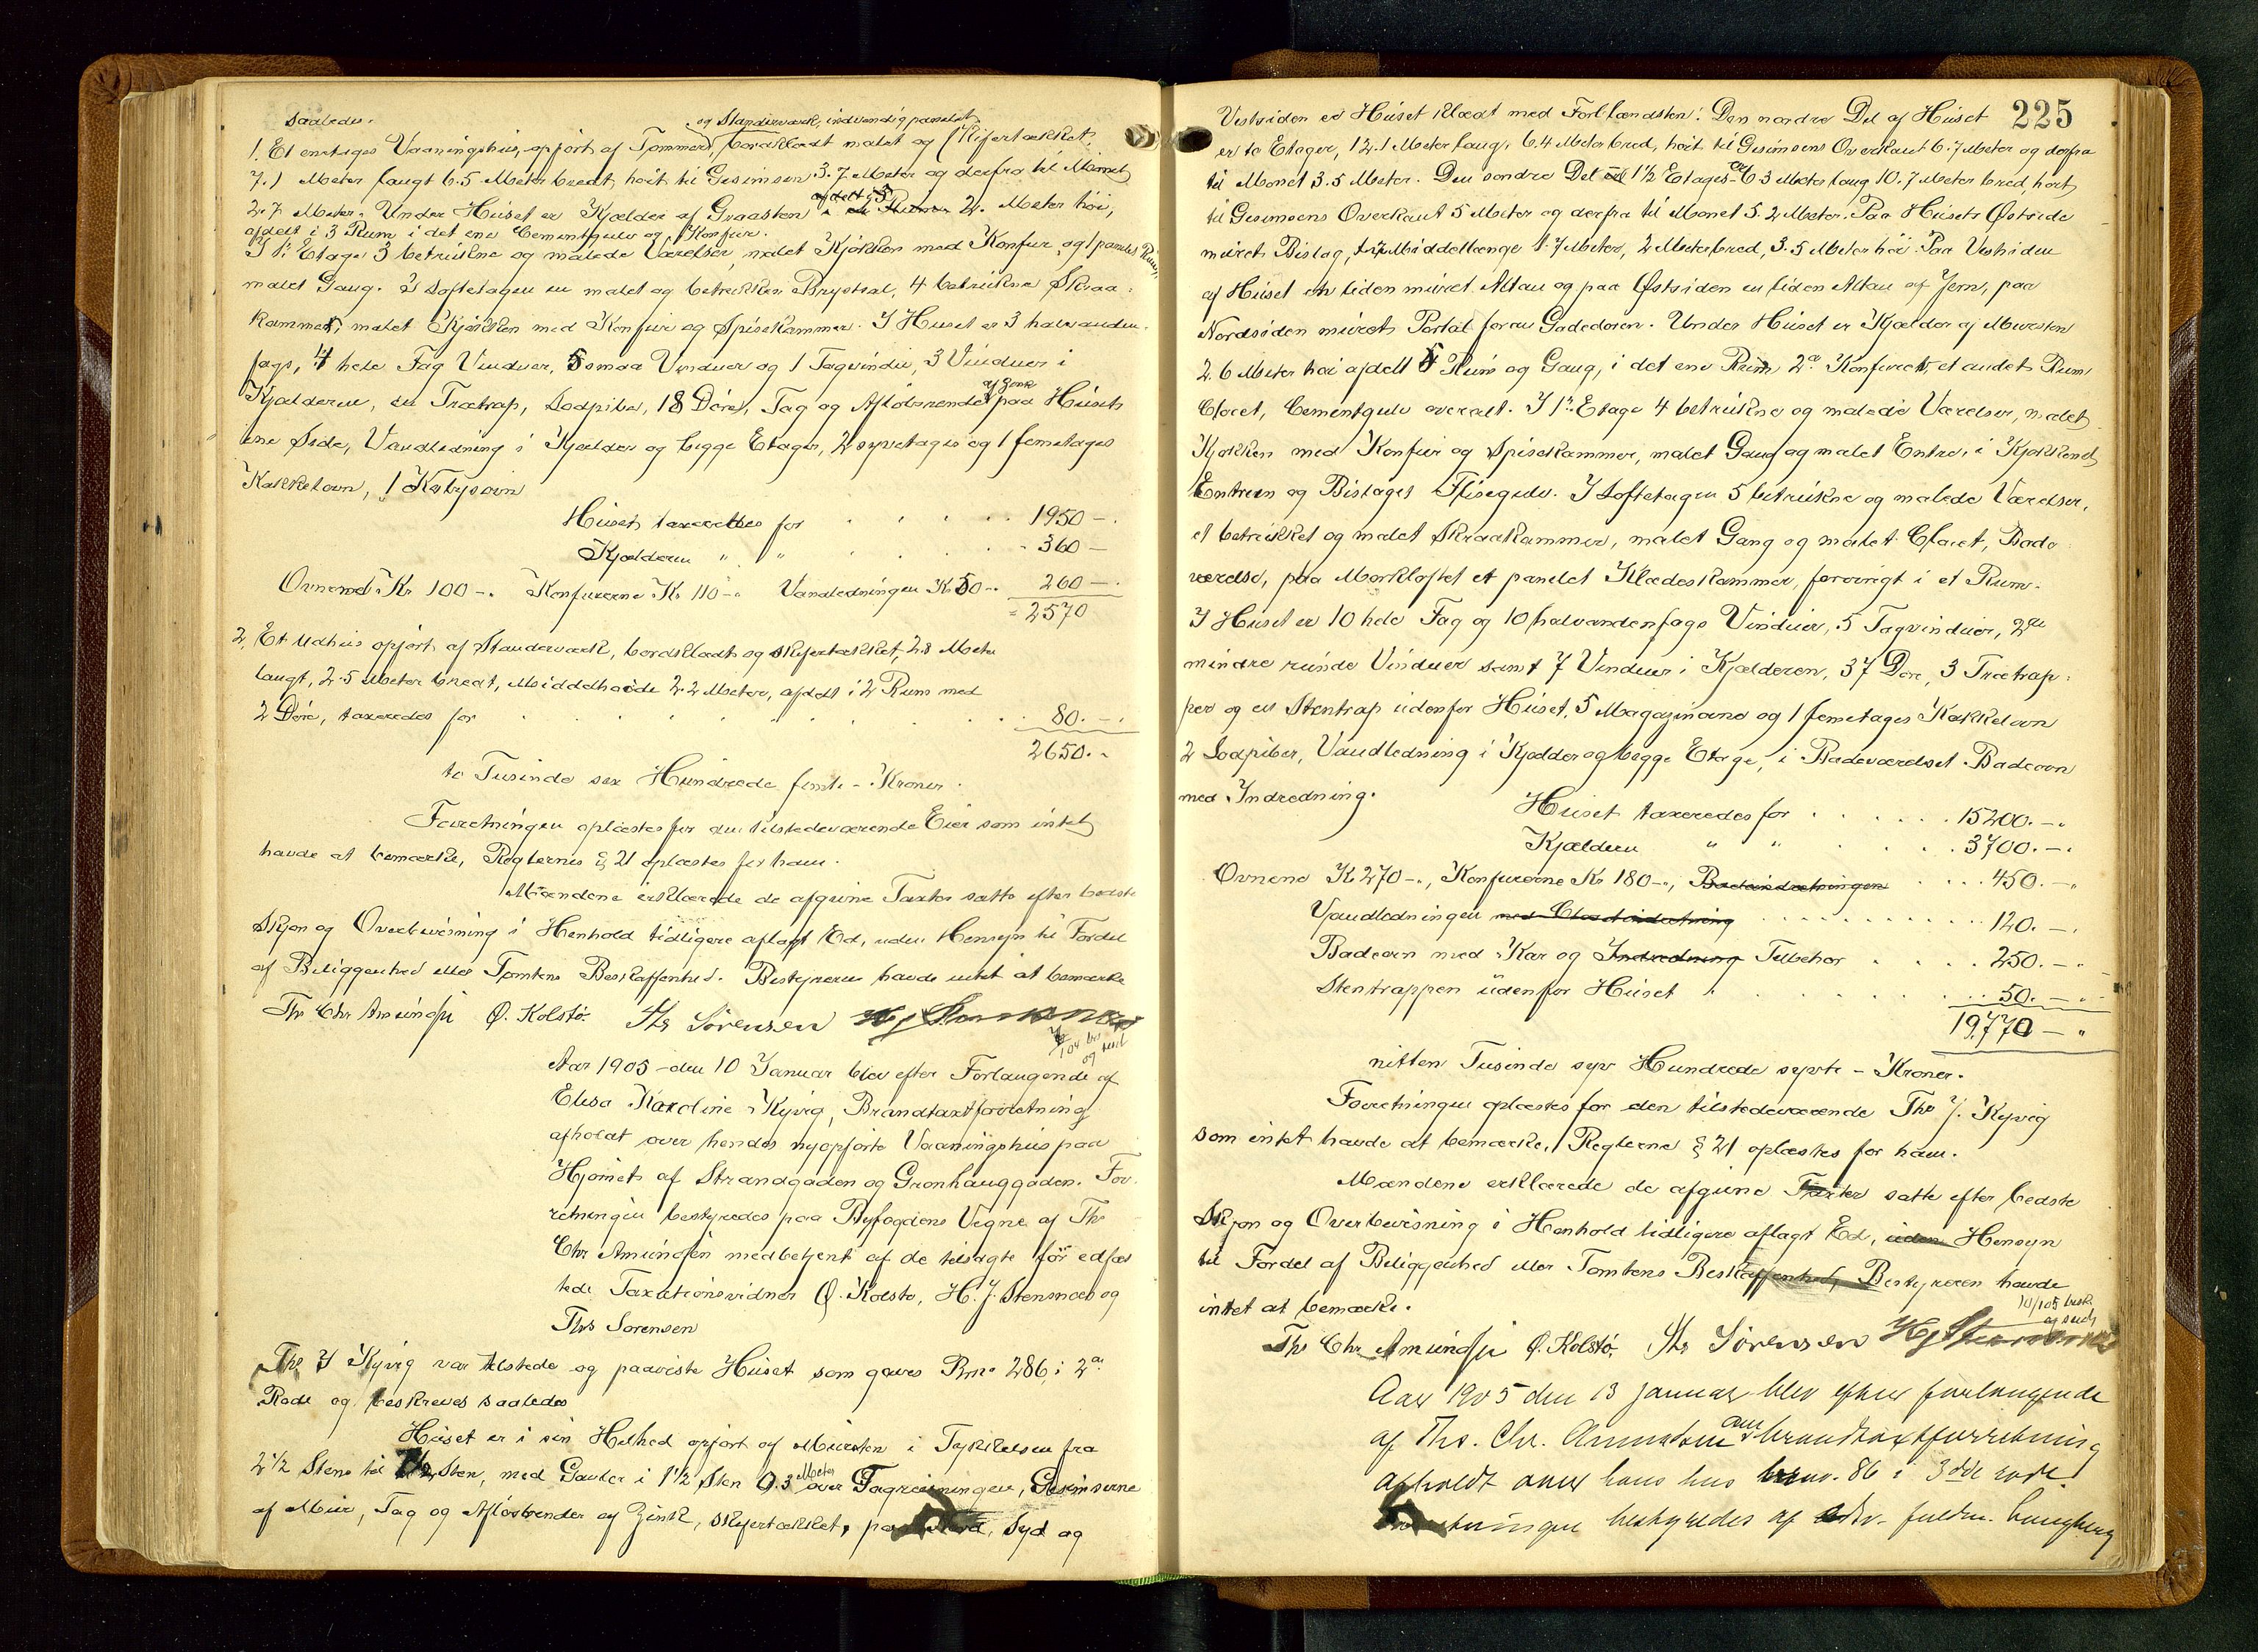 saaledes.
og Standerværk, indvendig panelet
1. Et enetages Vaaningshus, opført af Tømmer, bordklædt malet og skifertækket,
7.1 Meter langt 6.5 Meter bredt, høit til Gesimsen 3.7 Meter og derfra til Mønet
afdelt i 3
2.7 Meter. Under Huset er Kjælder af Graasten 2. Meter høi,
afdelt i 3 Rum i det ene Cementgulv og Konfur.
I 1ste Etage 3 betrukne og malede Værelser, malet Kjøkken med Konfur og 1 panelet Rum,
malet Gang. I Loftetagen en malet og betrukken Brystsal, 4 betrukne Skraa-
kammer, malet Kjøkken med Konfur og Spisekammer. I Huset er 3 halvanden-
fags, 4 hele Fag Vinduer, 5 smaa Vinduer og 1 Tagvindu, 3 Vinduer i
af Zink
Kjælderen, en Trætrap, Lodpibe, 18 Døre, Tag og Afløbsrender paa Husets
ene Side, Vandledning i Kjælder og begge Etager, 2 syvetages og 1 femetages
Kakkelovn, 1 Kobysovn
Huset taxeredes for 1950 -.
Kjælderen " " 360 -
Ovnene Kr. 100 -. Konfurerne Kr 110 -. Vandledningen Kr 50 -. 260 -.
2570
2, Et Udhus opført af Standerværk, bordklædt og skifertækket, 2.8 Meter
langt, 2.5 Meter bredt, Middelhøide 2.2 Meter, afdelt i 2 Rum med
2 Døre, taxeredes for 80. -.
2650. -
to Tusinde sex Hundrede femti - Kroner.
Forretningen oplæstes for den tilstedeværende Eier som intet
havde at bemærke, Reglernes § 21 oplæstes for ham.
Mændene erklærede de afgivne Taxter satte efter bedste
Skjøn og Overbevisning i Henhold tidligere aflagt Ed, uden Hensyn til Fordel
af Beliggenhed eller Tomtens Beskaffenhed. Bestyreren havde intet at bemærke
Ths Chr Amundsen Ø. Kolstø. Ths Sørensen HJ Stensnæs
Aar 1905 - den 10 Januar blev efter Forlangende af
Elisa Karoline Kyvig, Brandtaxtforretning
afholdt over hendes nyopførte Vaaningshus paa
Hjørnet af Strandgaden og Grønhauggaden. For-
retningen bestyredes paa Byfogdens Vegne af Ths
Chr Amundsen medbetjent af de tilsagte før edfæs
tede Taxationsvidner Ø. Kolstø, H. J. Stensnæs og
Ths Sørensen
Ths J Kyvig var tilstede og paaviste Huset som gaves Bno 286 i 2de
Rode og beskreves saaledes
Huset er i sin Helhed opført af Mursten i Tykkelsen fra
2 1/2 Stens til Sten, med Gavler i 1 1/2 Sten 0.3 Meter over Tagreisningen, Gesimserne
af Mur, Tag og Afløbsrender af Zink, skifertækket, paa Nord, Syd og
225
Vestsiden er Huset klædt med Forblændsten. Den nordre Del af Huset
er to Etager, 12.1 Meter lang, 6.4 Meter bred, høit til Gesimsens Overkant 6.7 Meter og derfra
til Mønet 3.5 Meter. Den søndre Del er 1 1/2 Etages 6.3 Meter lang 10.7 Meter bred, høit
til Gesimsens Overkant 5 Meter og derfra til Mønet 5.2 Meter. Paa Husets Østside
muret Bislag, Middellængde 1.7 Meter, 2 Meter bred, 3.5 Meter høi. Paa Vestsiden
af Huset en liden muret Altan og paa Østsiden en liden Altan af Jern, paa
Nordsiden muret Portal foran Gadedøren. Under Huset er Kjælder af Mursten
2.6 Meter høi afdelt 5 Rum og Gang, i det ene Rum 2de Konfurer, et andet Rum
Closet, Cementgulv overalt. I 1ste Etage 4 betrukne og malede Værelser, malet
Kjøkken med Konfur og Spisekammer, malet Gang og malet Entre, i Kjøkkenet
Entreen og Bislaget Flisegulv. I Loftetagen 5 betrukne og malede Værelser,
et betrukket og malet Skraakammer, malet Gang og malet Closet, Bade-
værelse, paa Mørkloftet et panelet Klædeskammer, forøvrigt i et Rum.
I Huset er 10 hele Fag og 10 halvandenfags Vinduer, 5 Tagvinduer, 2de
mindre runde Vinduer samt 7 Vinduer i Kjælderen, 37 Døre, 3 Trætrap-
per og en Stentrap udenfor Huset, 5 Magazinovne og 1 femetages Kakkelovn
2 Lodpiber, Vandledning i Kjælder og begge Etager, i Badeværelset Badeovn
med Indredning.
Huset taxeredes for 15200. -.
Kjælderen " " 3700. -.
Ovnene Kr 270 -., Konfurerne Kr 180 -., Badeindretningen 450. -.
Vandledningen med Closetindretning 120. -.
Badeovn med Kar og Indredning Tilbehør 250. -.
Stentrappen udenfor Huset 50. -.
19,770 - "
nitten Tusinde syv Hundrede sytti - Kroner.
Forretningen oplæstes for den tilstedeværende Ths J. Kyvig
som intet havde at bemærke, Reglerne § 21 oplæstes for ham.
Mændene erklærede de afgivne Taxter satte efter bedste
Skjøn og Overbevisning i Henhold tidligere aflagt Ed, uden Hensyn
til Fordel af Beliggenhed eller Tomtens Beskaffenhed, Bestyreren havde
intet at bemærke.
Ths Chr Amundsen Ø. Kolstø, Ths Sørensen HJ Stensnæs
Aar 1905 den 13 januar blev efter forlangende
af Ths. Chr. Amundsen brandtaxtforretning
afholdt over hans hus bno. 86 i 3die rode
Forretningen bestyredes af edsv. fuldm. Langberg